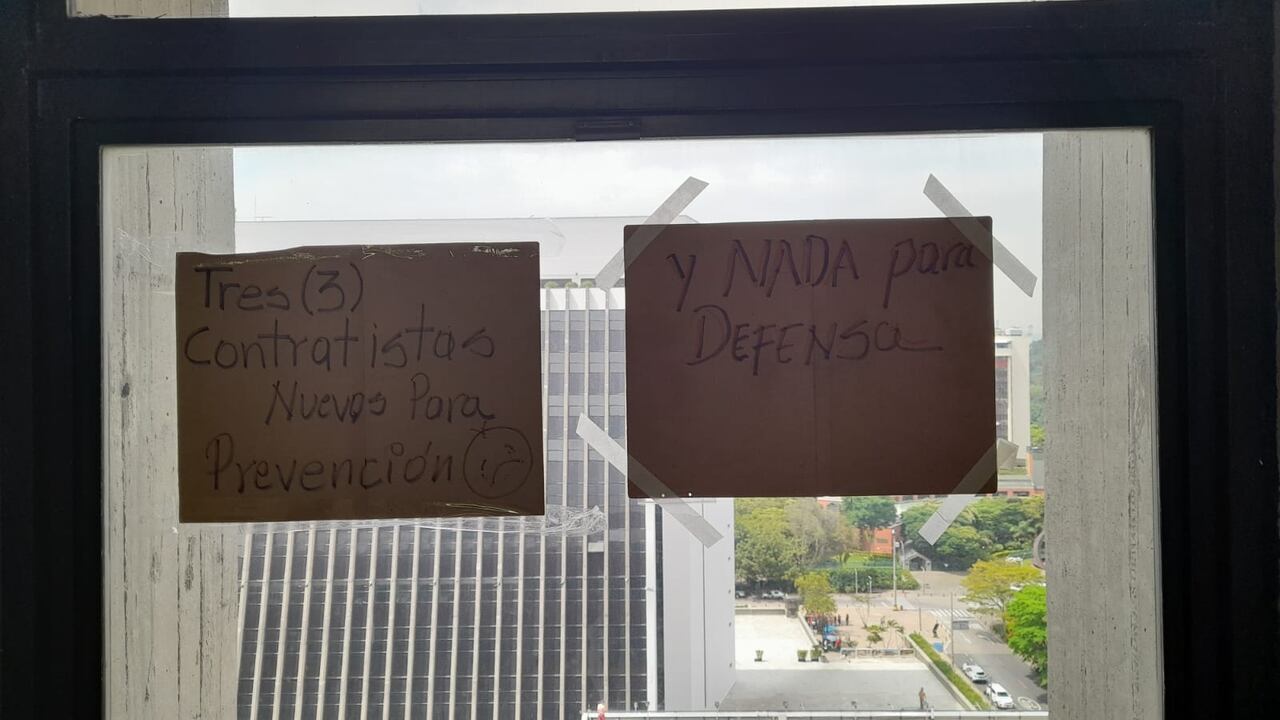 Tres (3)
Contratistas
Nuevos Para
Prevención
y NADA para
DEFENSa